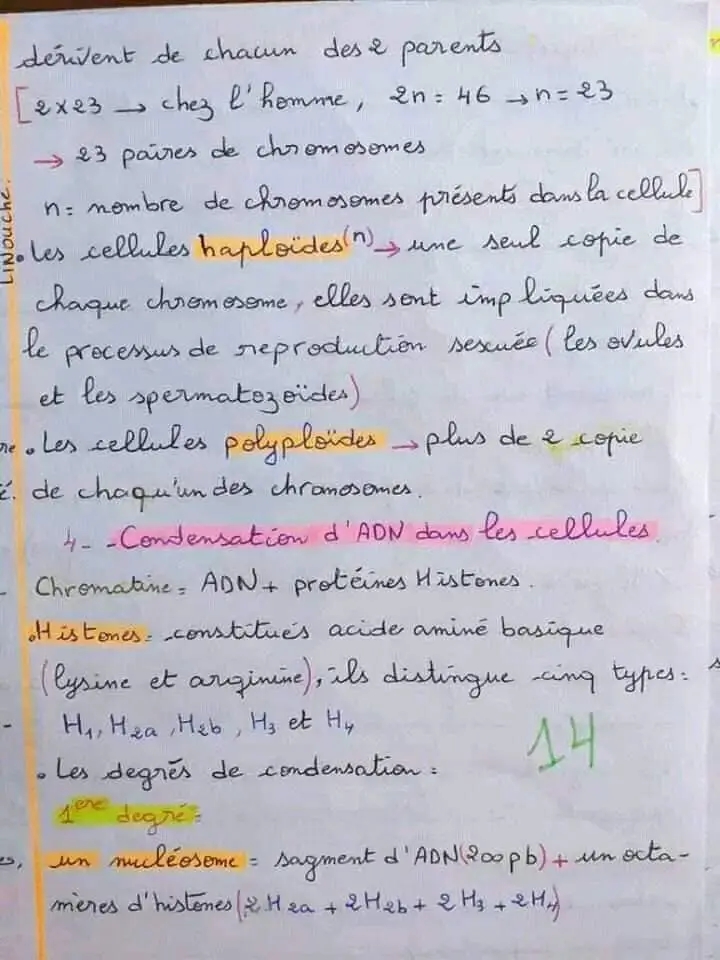 dérivent de chacun des 2 parents
[2x23 → chez l'homme, 2n = 46 → n = 23
→ 23 paires de chromosomes
n = nombre de chromosomes présents dans la cellule]
LINOUCHE.
• Les cellules haploïdes (n) → une seul copie de
chaque chromosome, elles sont impliquées dans
le processus de reproduction sescuée (les ovules
et les spermatozoïdes)
• Les cellules polyploïdes → plus de 2 copie
de chaqu'un des chromosomes.
4- - Condensation d'ADN dans les cellules
Chromatine = ADN + protéines Histones.
• Histones = constitués acide aminé basique
(lysine et arginine), ils distingue cinq types =
H1, H2a, H2b, H3 et H4
14
• Les degrés de condensation =
1ere degré =
un nucléosome = sagment d'ADN (200pb) + un octa-
mères d'histones (2H2a + 2H2b + 2H3 + 2H4)